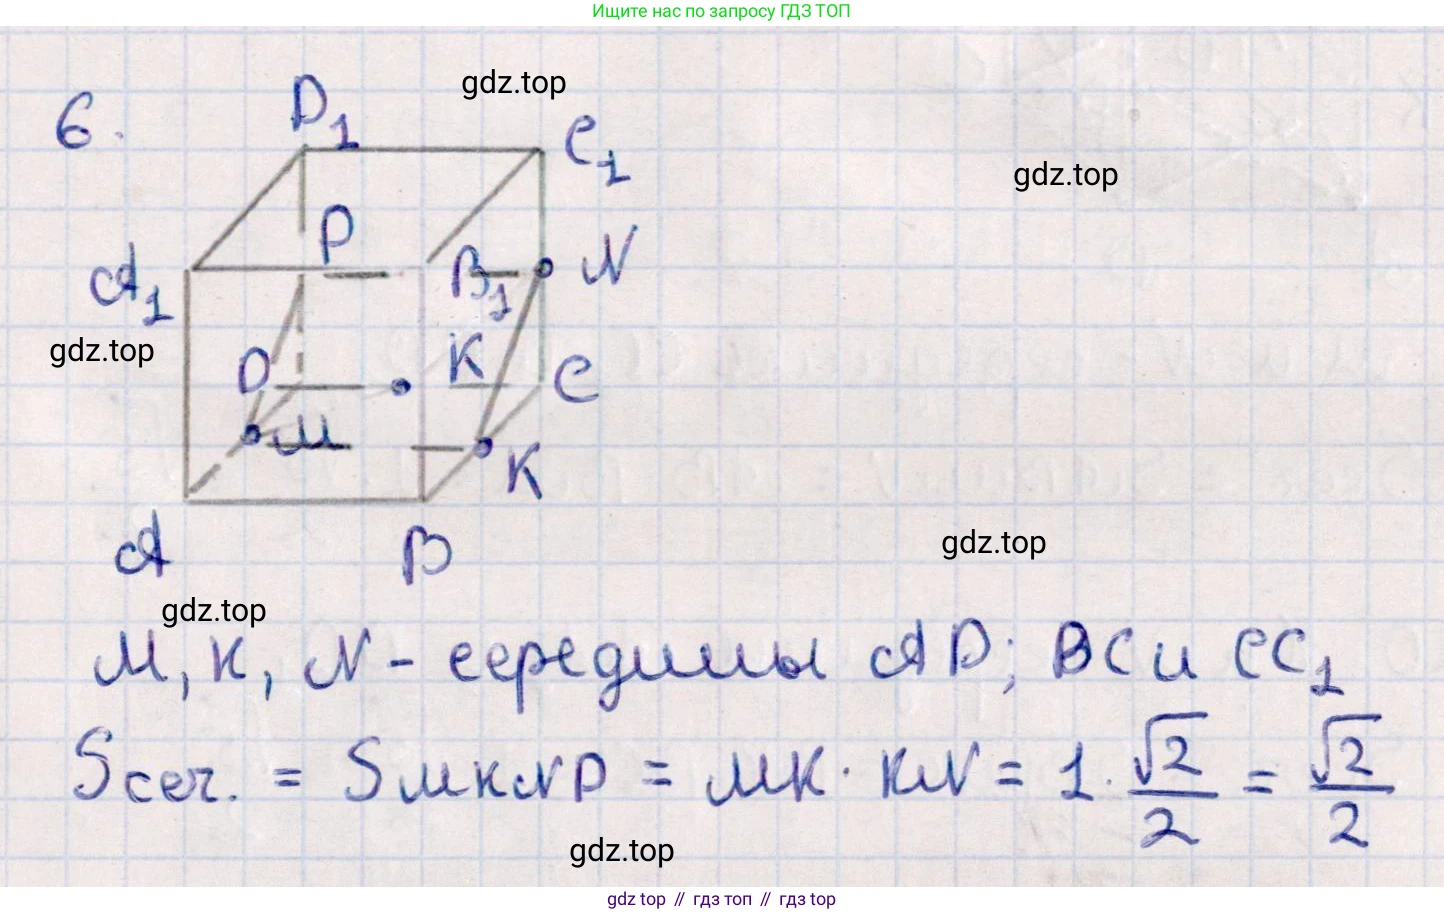 Ищите нас по запросу ГДЗ ТОП
gdz.top
6.
D₁
C₁
gdz.top
P
A₁
B₁
N
gdz.top
D
K
C
M
K
gdz.top
A
B
gdz.top
M, K, N - середины AD; BC и CC₁
Sсеч. = SMKNP = MK · KN = 1 · √2/2 = √2/2
gdz.top
gdz top // гдз топ // gdz top